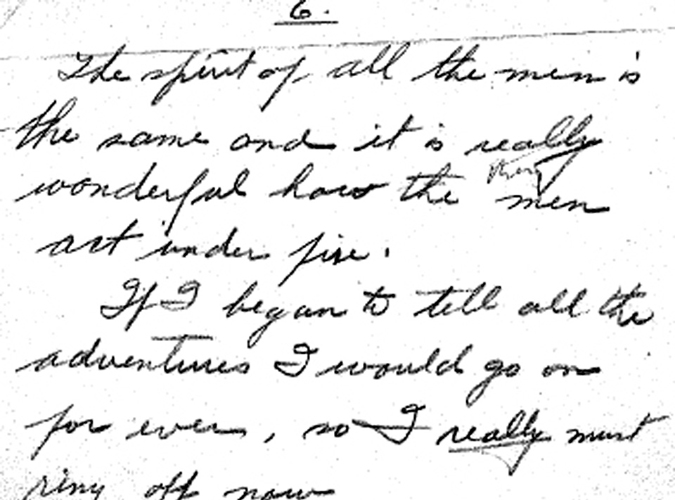 6.
The spirit of all the men is
the same and it is really
wonderful how the men
act under fire.
If I began to tell all the
adventures I would go on
for ever, so I really must
ring off now